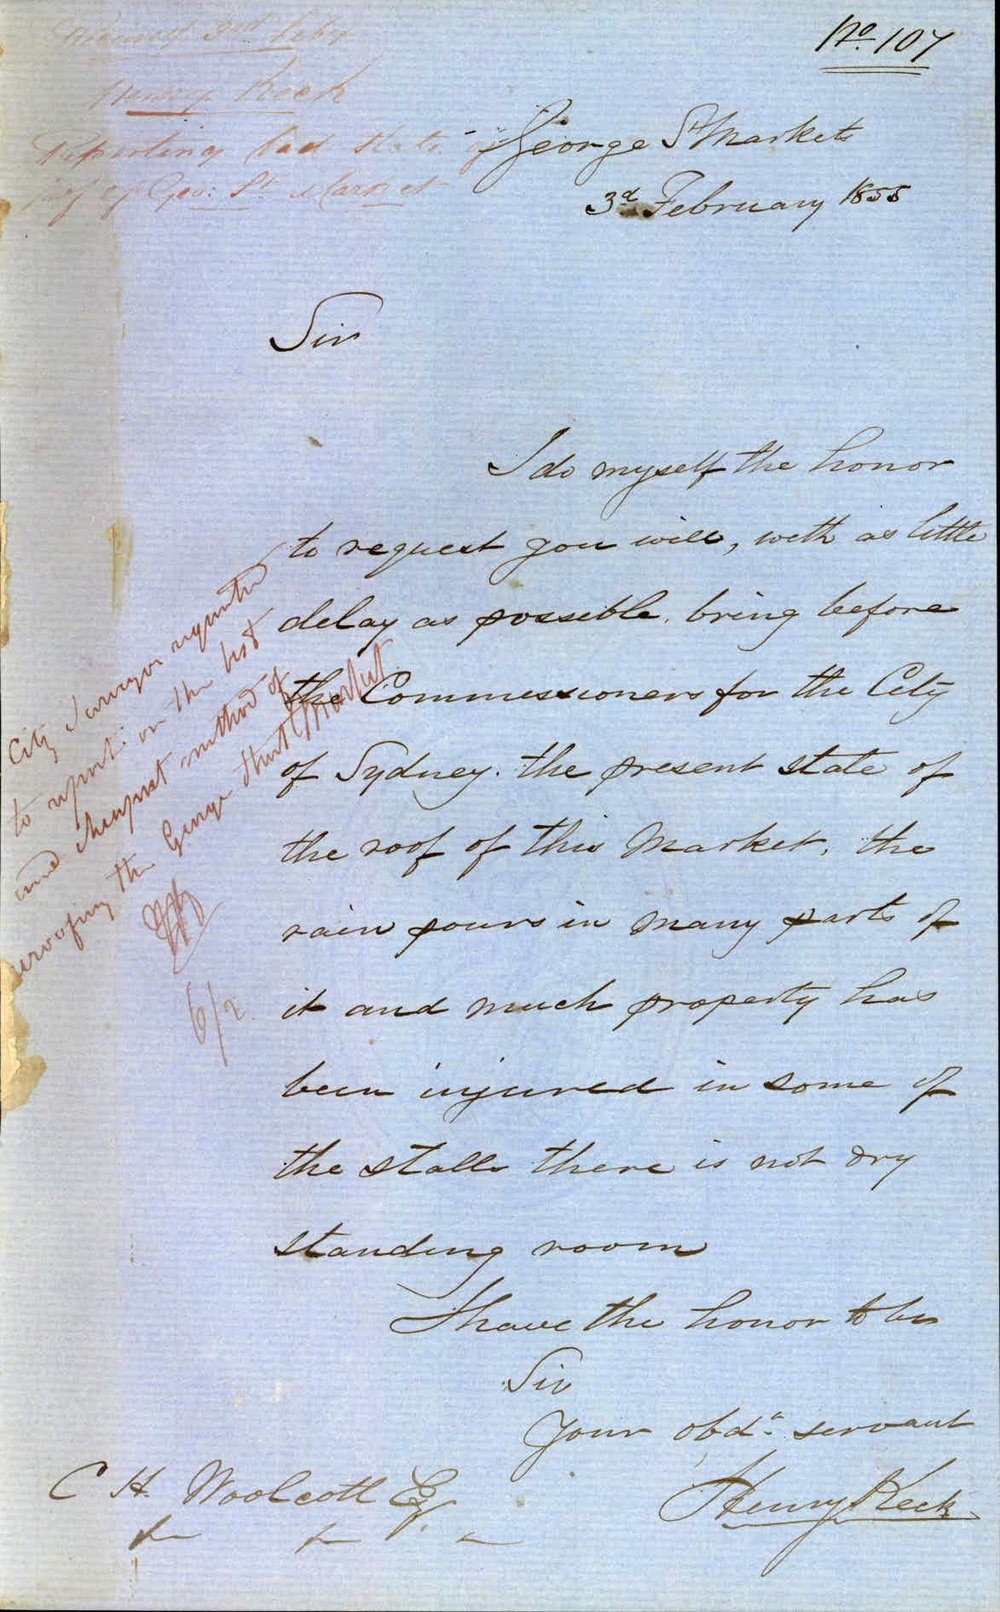 No. 107
Received 3rd Feby
Henry Keck
Reporting bad state of
roof of Geo: St. Market
George St Markets
3d February 1855
Sir
I do myself the honor
to request you will, with as little
delay as possible, bring before
the Commissioners for the City
of Sydney. the present state of
the roof of this Market, the
rain pours in many parts of
it and much property has
been injured in some of
the stalls there is not dry
standing room
I have the honor to be
Sir
Your obdt. servant
Henry Keck
C H. Woolcott Esq.
City Surveyor requested
to report on the best
and cheapest method of
reroofing the George Street Market.
6/2